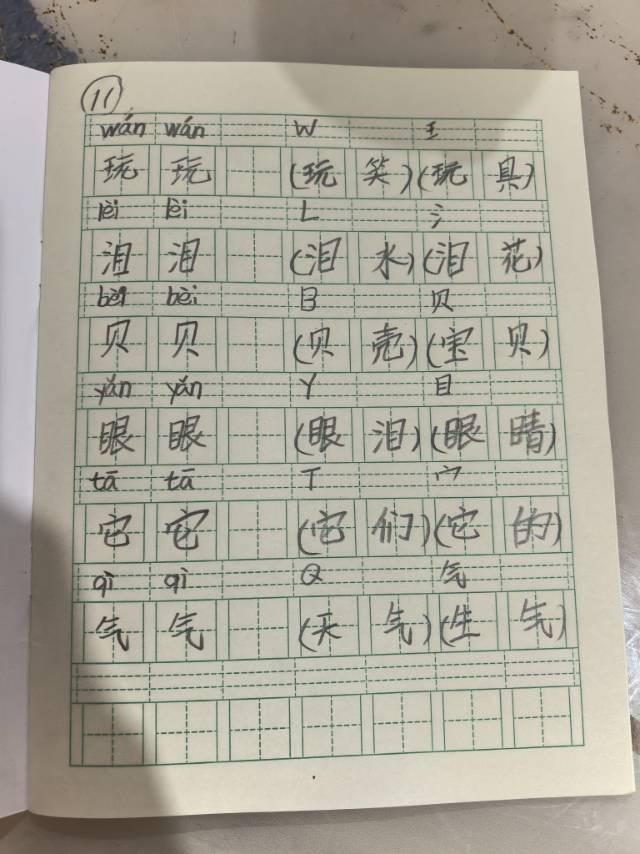 11
wán wán W 王
玩 玩 (玩 笑) (玩 具)
lèi lèi L 氵
泪 泪 (泪 水) (泪 花)
bèi bèi B 贝
贝 贝 (贝 壳) (宝 贝)
yǎn yǎn Y 目
眼 眼 (眼 泪) (眼 睛)
tā tā T 宀
它 它 (它 们) (它 的)
qì qì Q 气
气 气 (天 气) (生 气)